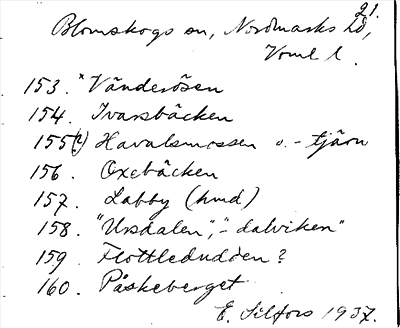 21.
Blomskogs sn, Nordmarks hd,
Verml l.
153. "Vänderösen
154. Ivarsbäcken
155(?) Havalsmossen o. - tjärn
156. Oxebäcken
157. Labby (hmd)
158. "Uppdalen", "- dalviken"
159. Flottledudden?
160. Påskeberget
E. Silfors 1937.